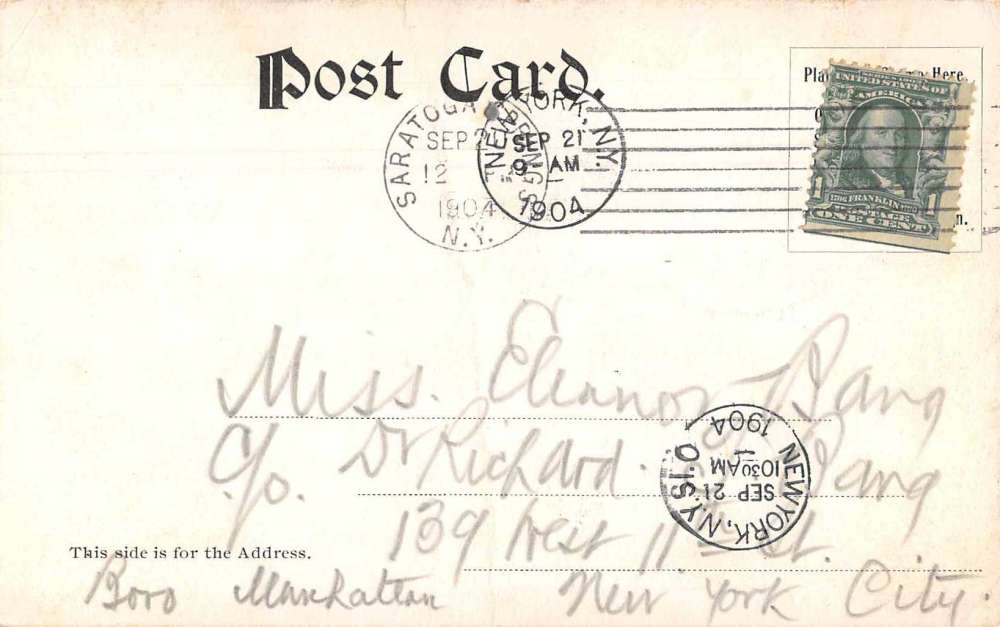 Post Card.
Place Here
SARATOGA SPRINGS
SEP 2
12
1904
N.Y.
NEW YORK, N.Y.
SEP 21
9 AM
1904
UNITED STATES OF
AMERICA
1 1706 FRANKLIN 1790 1
POSTAGE
ONE CENT
Miss. Eleanor Bang
C/o. Dr Richard Bang
NEW YORK, N.Y.
SEP 21
10 30 AM
1904
139 West 11th St.
This side is for the Address.
Boro Manhattan New York City.